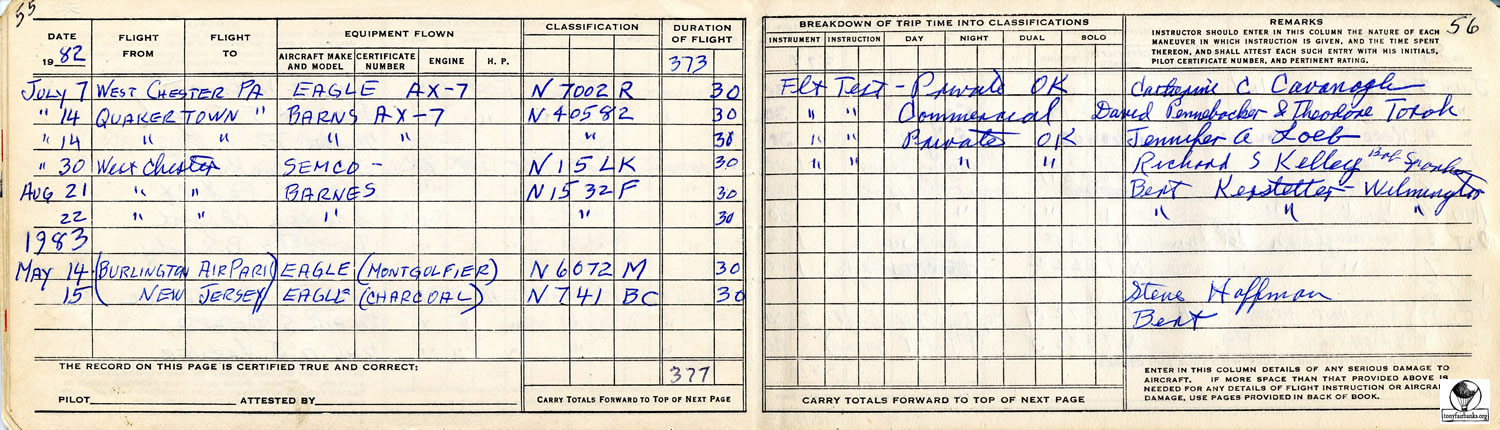 55
DATE
1982
FLIGHT FROM
FLIGHT TO
EQUIPMENT FLOWN
AIRCRAFT MAKE AND MODEL
CERTIFICATE NUMBER
ENGINE
H. P.
CLASSIFICATION
DURATION OF FLIGHT
373
JULY 7 WEST CHESTER PA EAGLE AX-7 N 7002 R 30
" 14 QUAKERTOWN " BARNS AX-7 N 40582 30
" 14 " " " " " 30
" 30 West Chester SEMCO - N 15 LK 30
AUG 21 " " BARNES N 1532 F 30
22 " " " " 30
1983
MAY 14 (BURLINGTON AIR PARK) EAGLE (MONTGOLFIER) N 6072 M 30
15 ( NEW JERSEY) EAGLE (CHARCOAL) N 741 BC 30
THE RECORD ON THIS PAGE IS CERTIFIED TRUE AND CORRECT:
377
PILOT ATTESTED BY
CARRY TOTALS FORWARD TO TOP OF NEXT PAGE
56
BREAKDOWN OF TRIP TIME INTO CLASSIFICATIONS
INSTRUMENT
INSTRUCTION
DAY
NIGHT
DUAL
SOLO
REMARKS
INSTRUCTOR SHOULD ENTER IN THIS COLUMN THE NATURE OF EACH
MANEUVER IN WHICH INSTRUCTION IS GIVEN, AND THE TIME SPENT
THEREON, AND SHALL ATTEST EACH SUCH ENTRY WITH HIS INITIALS,
PILOT CERTIFICATE NUMBER, AND PERTINENT RATING.
Flt Test - Private OK Catherine C Cavanogh
" " Commercial David Pennebacker & Theodore Torok
" " Private OK Jennifer A Loeb
" " " " Richard S Kelley Bob
Bert Kerstetter - Wilmington
" " "
Steve Hoffman
Bert
ENTER IN THIS COLUMN DETAILS OF ANY SERIOUS DAMAGE TO
AIRCRAFT. IF MORE SPACE THAN THAT PROVIDED ABOVE IS
NEEDED FOR ANY DETAILS OF FLIGHT INSTRUCTION OR AIRCRAFT
DAMAGE, USE PAGES PROVIDED IN BACK OF BOOK.
CARRY TOTALS FORWARD TO TOP OF NEXT PAGE
tonyfairbanks.org